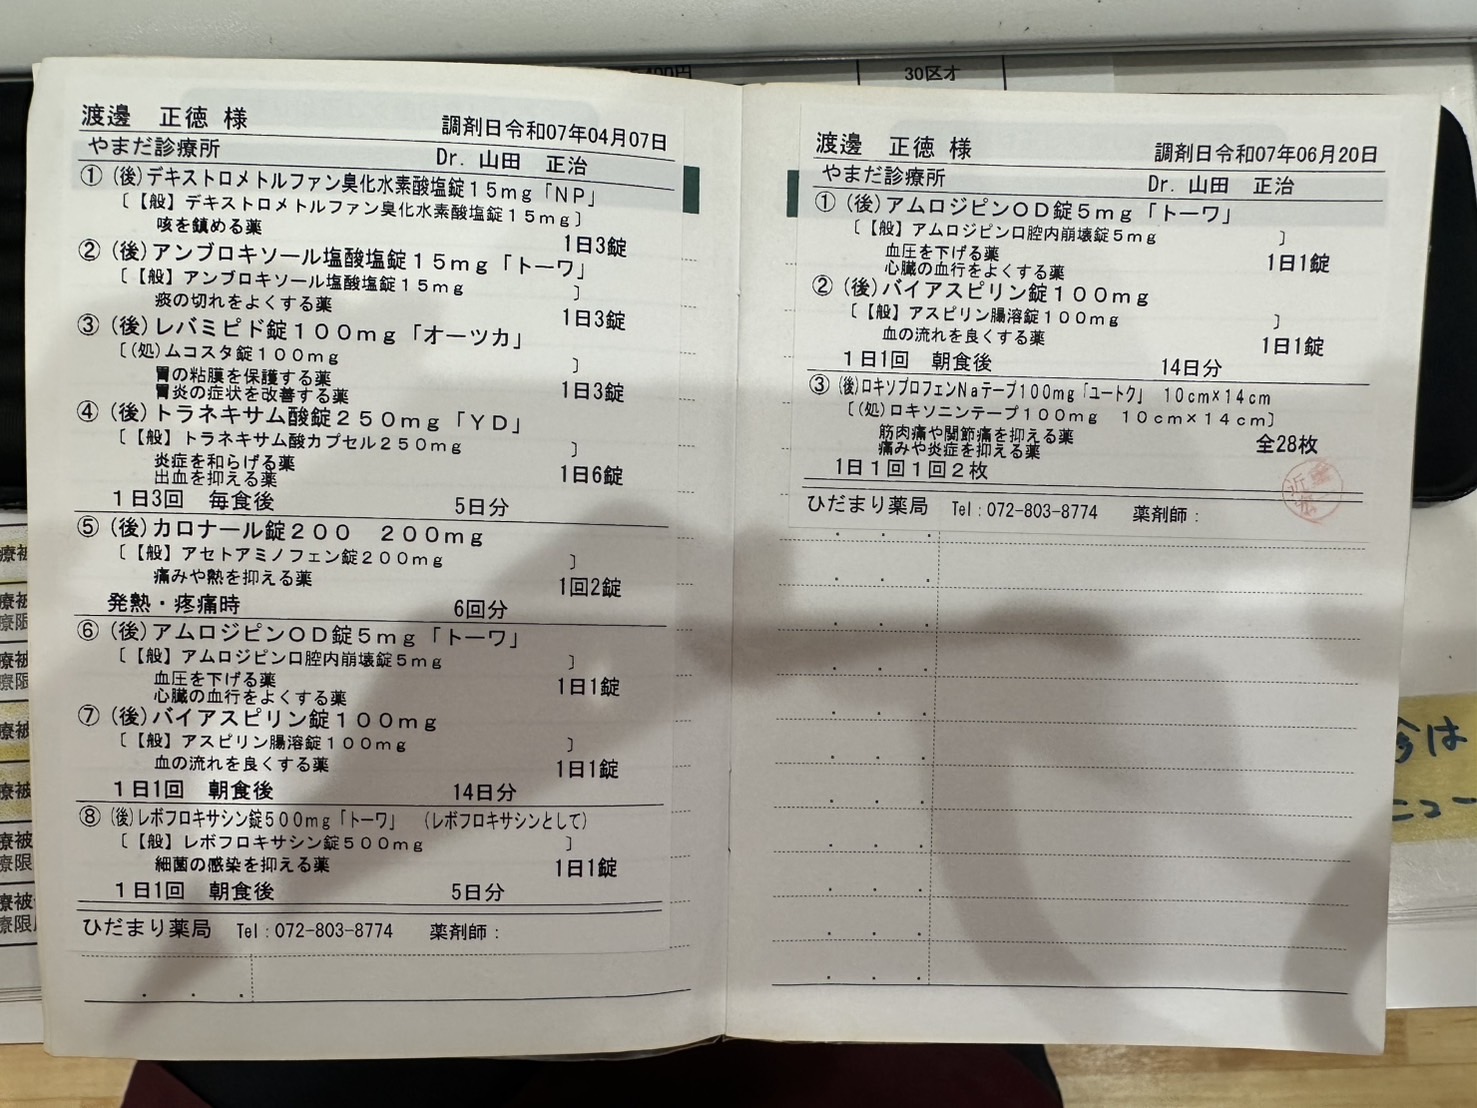 30区オ
渡邊 正徳 様
調剤日令和07年04月07日
やまだ診療所 Dr. 山田 正治
① (後)デキストロメトルファン臭化水素酸塩錠15mg「NP」
〔【般】デキストロメトルファン臭化水素酸塩錠15mg〕
咳を鎮める薬
1日3錠
② (後)アンブロキソール塩酸塩錠15mg「トーワ」
〔【般】アンブロキソール塩酸塩錠15mg 〕
痰の切れをよくする薬
1日3錠
③ (後)レバミピド錠100mg「オーツカ」
〔(処)ムコスタ錠100mg 〕
胃の粘膜を保護する薬
胃炎の症状を改善する薬 1日3錠
④ (後)トラネキサム酸錠250mg「YD」
〔【般】トラネキサム酸カプセル250mg 〕
炎症を和らげる薬
出血を抑える薬 1日6錠
1日3回 毎食後 5日分
⑤ (後)カロナール錠200 200mg
〔【般】アセトアミノフェン錠200mg 〕
痛みや熱を抑える薬 1回2錠
発熱・疼痛時 6回分
⑥ (後)アムロジピンOD錠5mg「トーワ」
〔【般】アムロジピン口腔内崩壊錠5mg 〕
血圧を下げる薬
心臓の血行をよくする薬 1日1錠
⑦ (後)バイアスピリン錠100mg
〔【般】アスピリン腸溶錠100mg 〕
血の流れを良くする薬 1日1錠
1日1回 朝食後 14日分
⑧ (後)レボフロキサシン錠500mg「トーワ」 (レボフロキサシンとして)
〔【般】レボフロキサシン錠500mg 〕
細菌の感染を抑える薬 1日1錠
1日1回 朝食後 5日分
ひだまり薬局 Tel:072-803-8774 薬剤師:
渡邊 正徳 様
調剤日令和07年06月20日
やまだ診療所 Dr. 山田 正治
① (後)アムロジピンOD錠5mg「トーワ」
〔【般】アムロジピン口腔内崩壊錠5mg 〕
血圧を下げる薬
心臓の血行をよくする薬 1日1錠
② (後)バイアスピリン錠100mg
〔【般】アスピリン腸溶錠100mg 〕
血の流れを良くする薬 1日1錠
1日1回 朝食後 14日分
③ (後)ロキソプロフェンNaテープ100mg「ユートク」 10cm×14cm
〔(処)ロキソニンテープ100mg 10cm×14cm〕
筋肉痛や関節痛を抑える薬
痛みや炎症を抑える薬 全28枚
1日1回1回2枚
ひだまり薬局 Tel:072-803-8774 薬剤師: